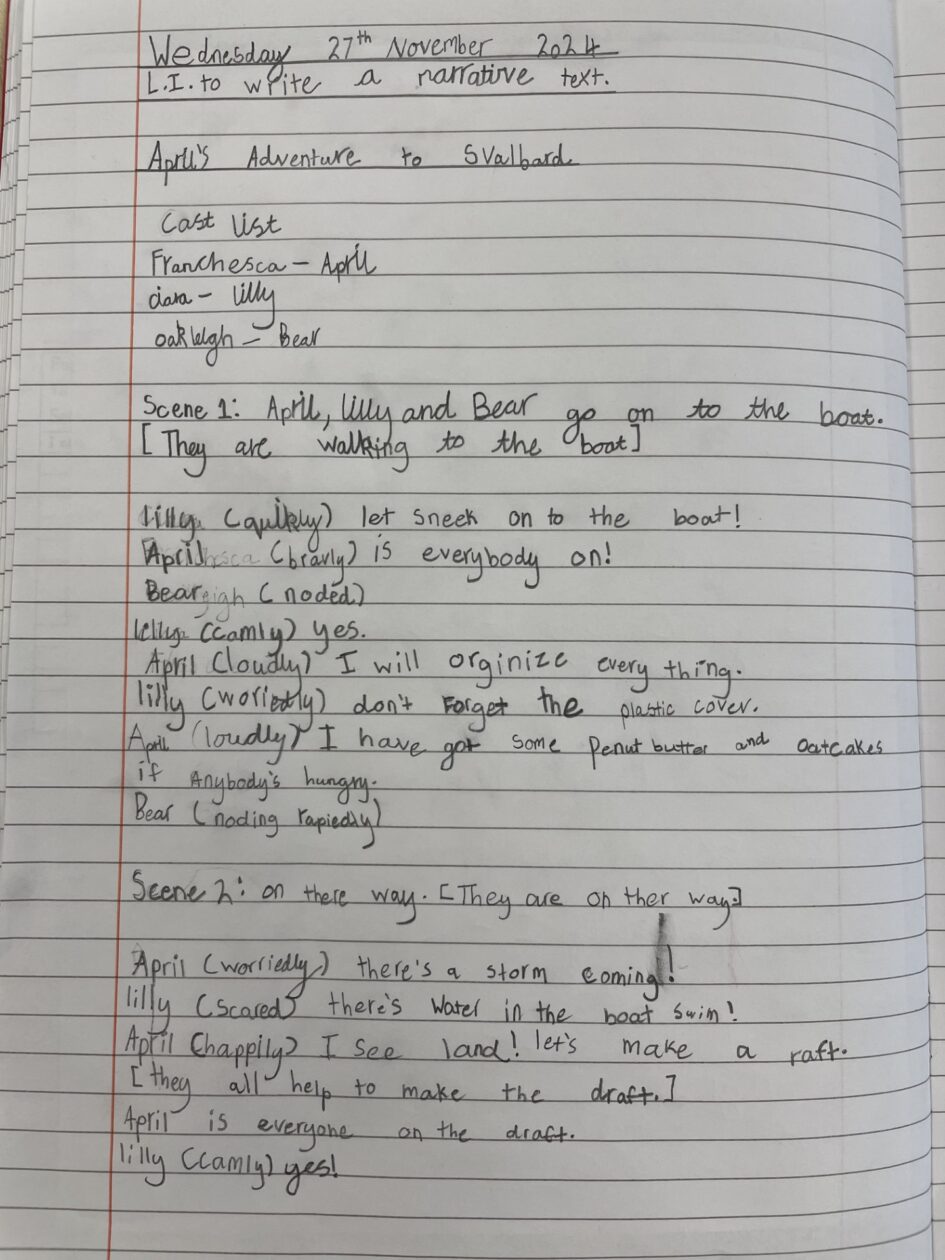 Wednesday 27th November 2024
L.I. to write a narrative text.
April's Adventure to Svalbard
Cast list
Franchesca - April
ciara - lilly
oakleigh - Bear
Scene 1: April, lilly and Bear go on to the boat.
[They are walking to the boat]
lilly (quikly) let sneek on to the boat!
April (bravly) is everybody on!
Bear (noded)
lilly (camly) yes.
April (loudly) I will orginize every thing.
lilly (woriedly) don't Forget the plastic cover.
April (loudly) I have got some Penut butter and oatcakes
if Anybody's hungry.
Bear (noding rapiedly)
Scene 2: on there way. [They are on ther way.]
April (worriedly) there's a storm coming!
lilly (scared) there's Water in the boat swim!
April (happily) I see land! let's make a raft.
[they all help to make the draft.]
April is everyone on the draft.
lilly (camly) yes!